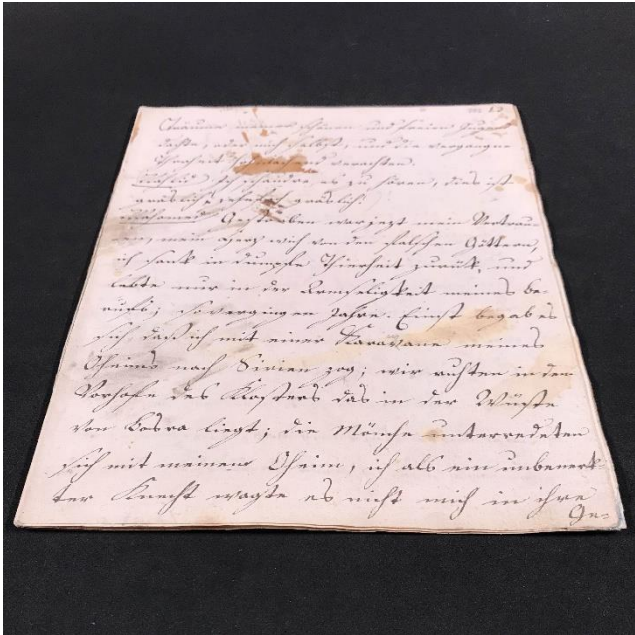 Träumen meiner schönen und freien Jugend
dachte, oder mich selbst, und die vergangne
Thorheit verachten.
Ich schaudre es zu hören, dies ist
gräslich gräslich.
Mahomed Gestorben war jezt mein Vertrau-
en, mein Herz wich von den falschen Göttern,
ich sank in dumpfe Thierheit zurük, und
lebte nur in der Armseligkeit meines be-
rufs; so vergingen Jahre. Einst begab es
sich, daß ich mit einer Karavane meines
Oheims nach Sirien zog; wir ruhten in dem
Vorhofe des Klosters das in der Wüste
von Bosra liegt; die Mönche unterredeten
sich mit meinem Oheim, ich als ein unbemerk-
ter Knecht wagte es nicht mich in ihre
Ge=